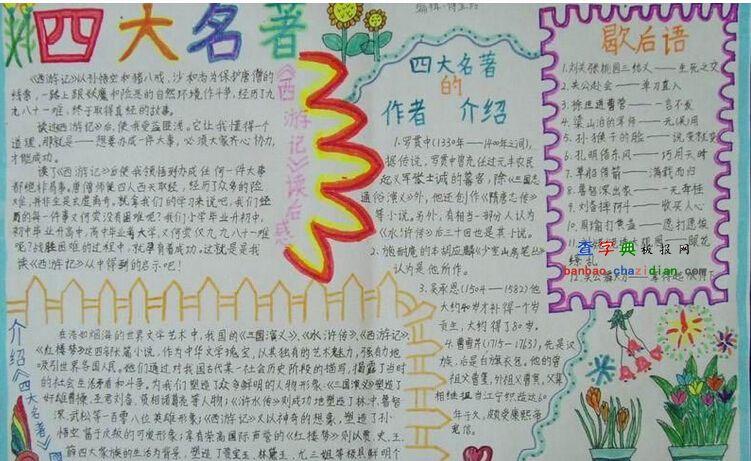 四大名著
《西游记》以孙悟空和猪八戒,沙和尚为保护唐僧的
线索,一路上跟妖魔和险恶的自然环境作斗争,经历了九
九八十一难,终于取得真经的故事。
读过西游记》后,使我受益匪浅。它让我懂得一个
道理,那就是——想要办成一件大事,必须大家齐心协力,
才能成功。
读了《西游记》后使我领悟到办成任何一件大事
都绝非易事。唐僧师徒四人西天取经,经历了众多的险
难,并非全是玄虚离奇,就拿我们的学习来说吧,我们经
历的每一件事又何尝没有困难呢?我们小学毕业升初中,
初中毕业升高中,高中毕业考大学,又何尝仅九九八十一难
呢?战胜困难的过程中,就孕育着成功。这就是是我
读《西游记》从中得到的启示吧!
《西游记》读后感
编辑:
四大名著
的
作者 介绍
1.罗贯中(1330年—1400年之间),
据传说,罗贯中曾充任过元末农民
起义军张士诚的幕客,除《三国志
通俗演义》外,他还创作《隋唐志传》
等小说。另外,有相当一部分人认为
《水浒传》后三十回也是其小说。
2.施耐庵的本胡应麟《少室山房笔丛》
认为是他所作。
3.吴承恩(1504—1582)他
大约40岁才补得一个岁
贡生,大约得了80岁。
4.曹雪芹(1715—1763),先是汉
族,后是白旗衣包。他的曾
祖父曹玺,外祖父曹寅,父辈
相继担当江宁织造达60
年于久,颇受康熙帝
宠信。
歇后语
1.刘关张桃园三结义——生死之交
2.关公赴会——单刀直入
3.徐庶进曹营——一言不发
4.梁山泊的军师——无(吴)用
5.孙猴子的脸——说变就变
6.孔明借东风——巧用天时
7.草船借箭——满载而归
8.鲁智深出家——一无牵挂
9.刘备摔阿斗——收买人心
10.周瑜打黄盖——愿打愿挨
缭乱
查字典 板报网
banbao.chazidian.com
介绍《四大名著》
在浩如烟海的世界文学艺术中,我国的《三国演义》、《水浒传》、《西游记》、
《红楼梦》这四部长篇小说,作为中华文学瑰宝,以其独有的艺术魅力,强有力地
吸引世界各国人民。他们通过对我国古代某一社会历史阶段的描写,揭露了当时
的社会生活矛盾和斗争。为我们塑造了众多鲜明的人物形象,《三国演义》塑造了
好好雄曹操,圣君刘备,贤相诸葛亮等人物;《水浒传》成功地塑造了林冲、鲁智
深、武松等一百零八位英雄形象;《西游记》又以神奇的想象,塑造了孙
悟空富于反叛的可爱形象;享有崇高国际声誉的《红楼梦》则以贾、史、王、
薛四大家族的生活为背景,塑造了贾宝玉、林黛玉、尤三姐等极具鲜明个